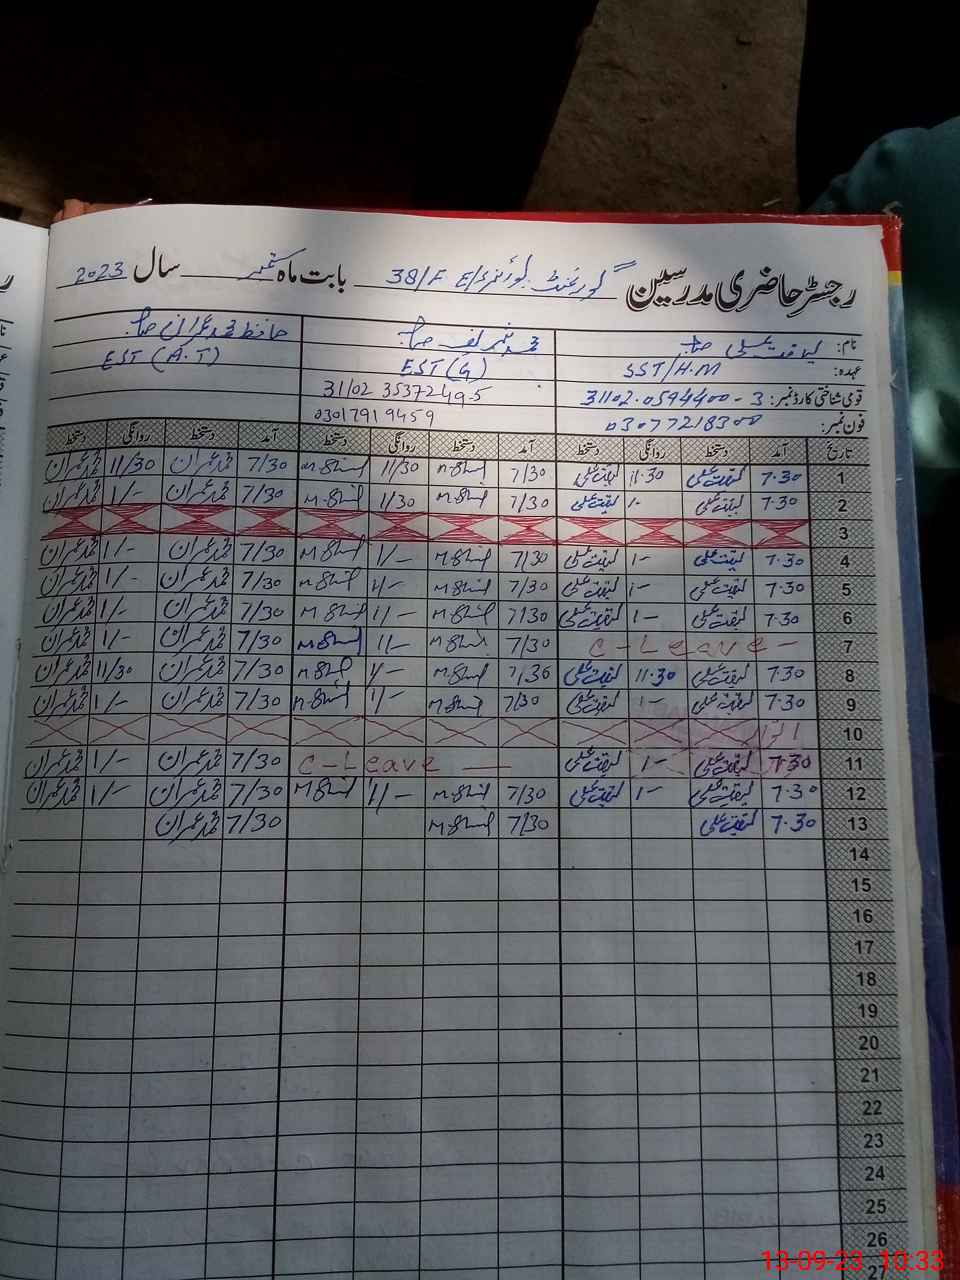 رجسٹر حاضری مدرسین گورنمنٹ 38/F E/ بابت ماہ ستمبر سال 2023
نام: لیاقت علی صاحب محمد شریف صاحب حافظ محمد عمران صاحب
عہدہ: SST/H.M EST(G) EST(A.T)
قومی شناختی کارڈ نمبر: 31102.0594400-3 31102 3537249-5
فون نمبر: 03077218300 03017919459
تاریخ آمد دستخط روانگی دستخط آمد دستخط روانگی دستخط آمد دستخط روانگی دستخط
1 7.30 لیاقت علی 11.30 لیاقت علی 7/30 11/30 7/30 محمد عمران 11/30 محمد عمران
2 7.30 لیاقت علی 1- لیاقت علی 7/30 1/30 7/30 محمد عمران 1/- محمد عمران
3
4 7.30 لیاقت علی 1- لیاقت علی 7/30 1/- 7/30 محمد عمران 1/- محمد عمران
5 7.30 لیاقت علی 1- لیاقت علی 7/30 1/- 7/30 محمد عمران 1/- محمد عمران
6 7.30 لیاقت علی 1- لیاقت علی 7/30 1/- 7/30 محمد عمران 1/- محمد عمران
7 C-Leave - 7/30 1/- 7/30 محمد عمران 1/- محمد عمران
8 7.30 لیاقت علی 11.30 لیاقت علی 7/30 1/- 7/30 محمد عمران 11/30 محمد عمران
9 7.30 لیاقت علی 1- لیاقت علی 7/30 1/- 7/30 محمد عمران 1/- محمد عمران
10 اتوار
11 7.30 لیاقت علی 1- لیاقت علی C-Leave — 7/30 محمد عمران 1/- محمد عمران
12 7.30 لیاقت علی 1- لیاقت علی 7/30 1/- 7/30 محمد عمران 1/- محمد عمران
13 7.30 لیاقت علی 7/30 7/30 محمد عمران
14
15
16
17
18
19
20
21
22
23
24
25
26
27
13-09-23 10:33